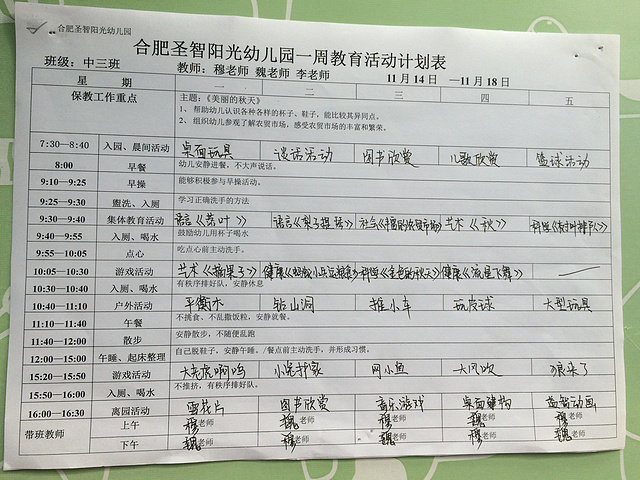 合肥圣智阳光幼儿园
合肥圣智阳光幼儿园一周教育活动计划表
班级：中三班 教师：穆老师 魏老师 李老师 11月14日 —11月18日
星 期 一 二 三 四 五
保教工作重点 主题：《美丽的秋天》
1、帮助幼儿认识各种各样的杯子、鞋子，能比较其异同点。
2、组织幼儿参观了解农贸市场，感受农贸市场的丰富和繁荣。
7:30—8:40 入园、晨间活动 桌面玩具 谈话活动 图书欣赏 儿歌欣赏 篮球活动
8:00 早餐 幼儿安静进餐，不大声说话。
9:10—9:25 早操 能够积极参与早操活动。
9:25—9:30 盥洗、入厕 学习正确洗手的方法
9:30—9:40 集体教育活动 语言《落叶》 语言《梨子提琴》 社会《丰富的农贸市场》 艺术《秋》
9:40—9:55 入厕、喝水 鼓励幼儿用杯子喝水
9:55—10:05 点心 吃点心前主动洗手。
10:05—10:30 游戏活动 艺术《摘果子》 健康 科学《金色的秋天》 健康
10:30—10:40 入厕、喝水 有秩序排好队，安静休息
10:40—11:10 户外活动 平衡木 钻山洞 推小车 玩皮球 大型玩具
11:10—11:40 午餐 不挑食、不乱撒饭粒，安静就餐。
11:40—12:00 散步 安静散步，不随便乱跑
12:00—15:00 午睡、起床整理 自己脱鞋子，安静午睡。/餐点前主动洗手，并形成习惯。
15:20—15:50 游戏活动 大老虎啊呜 网小鱼 大风吹 狼来了
15:50—16:00 入厕、喝水 不推挤，有秩序排好队。
16:00—16:30 离园活动 雪花片 图书欣赏 音乐游戏 桌面建构 益智动画
带班教师 上午 穆老师 魏老师 穆老师 魏老师 穆老师
下午 魏老师 穆老师 魏老师 穆老师 魏老师